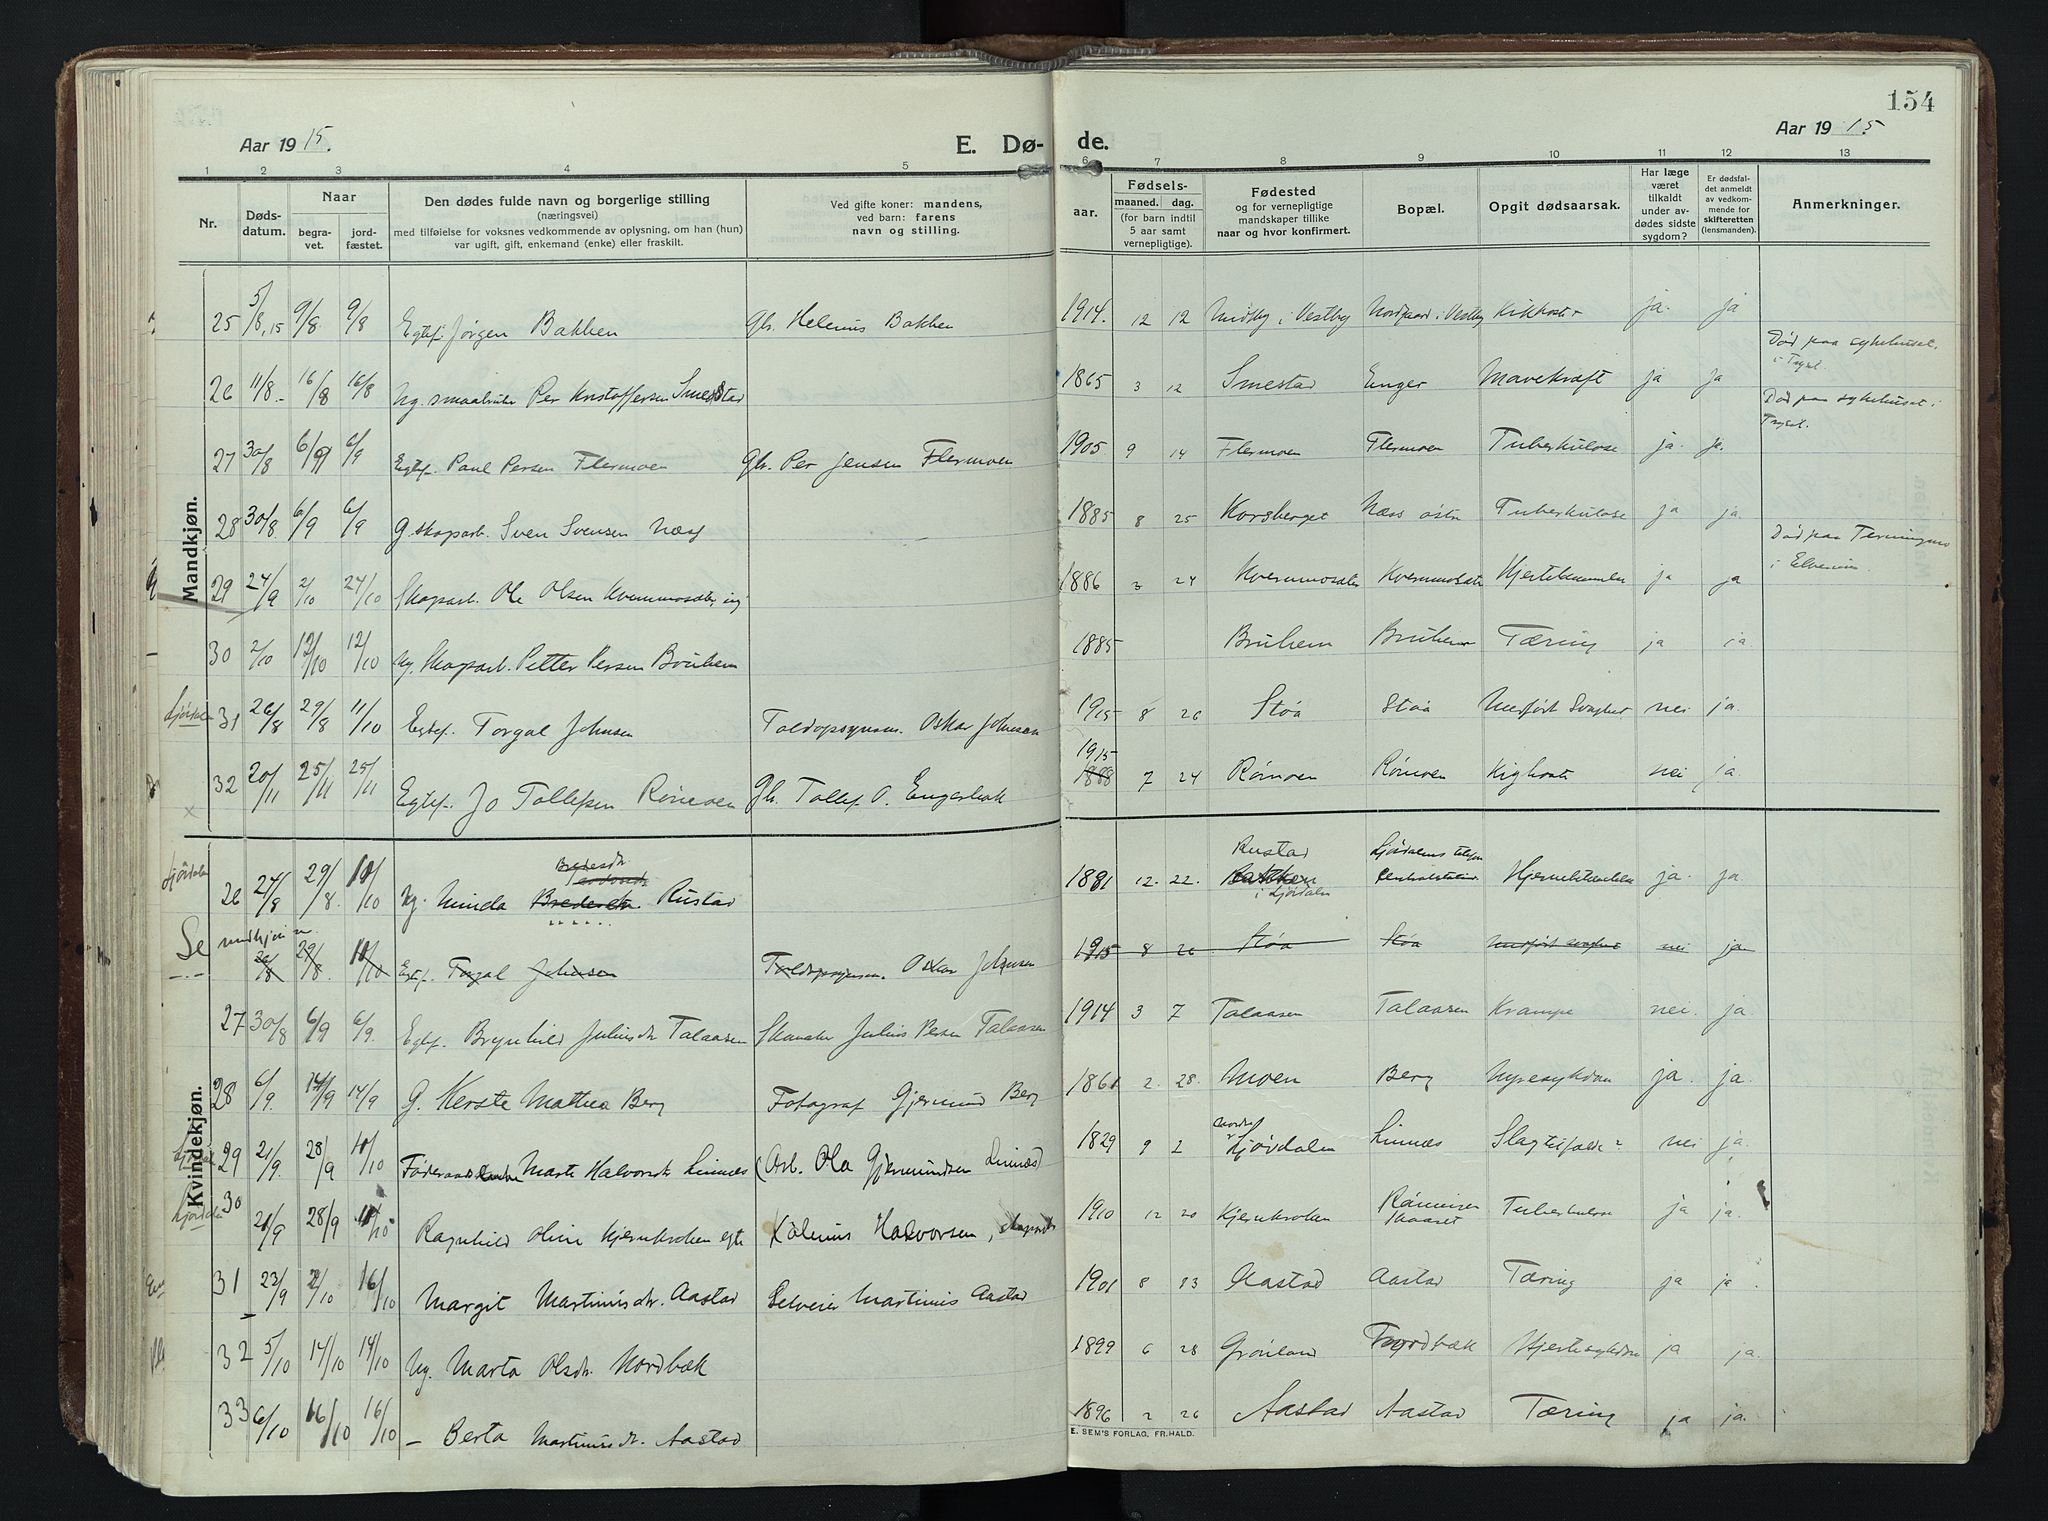 154
Aar 1915.
E. Dø-
de.
Aar 1915.
1 2 3 4 5 6 7 8 9 10 11 12 13
Nr.
Døds-
datum.
Naar
begra-
vet.
jord-
fæstet.
Den dødes fulde navn og borgerlige stilling
(næringsvei)
med tilføielse for voksnes vedkommende av oplysning, om han (hun)
var ugift, gift, enkemand (enke) eller fraskilt.
Ved gifte koner: mandens,
ved barn: farens
navn og stilling.
Fødsels-
aar.
maaned.
dag.
(for barn indtil
5 aar samt
vernepligtige).
Fødested
og for vernepligtige
mandskaper tillike
naar og hvor konfirmert.
Bopæl.
Opgit dødsaarsak.
Har læge
været
tilkaldt
under av-
dødes sidste
sygdom?
Er dødsfal-
det anmeldt
av vedkom-
mende for
skifteretten
(lensmanden).
Anmerkninger.
Mandkjøn.
25 5/8 15 9/8 9/8 Egtef. Jørgen Bakken Gbr. Helenius Bakken 1914. 12 12 i Vestby Nordgaard i Vestby Kikhoste ja. ja
26 11/8 16/8 16/8 Ug. smaabruker Per Kristoffersen Smestad 1865 3 12 Smestad Enger Mavekræft ja ja Død paa sykehuset
i Trysil.
27 30/8 6/9 6/9 Egtef. Paul Persen Flermoen Gbr. Per Jensen Flermoen 1905 9 14 Flermoen Flermoen Tuberkulose ja. ja. Død paa sykehuset i
Trysil.
28 30/8 6/9 6/9 G. skogarb. Sven Svensen Næss 1885 8 25 Korsberget Næss østre Tuberkulose ja ja.
29 24/9 2/10 24/10 Skogarb. Ole Olsen Kvernmosæter, ug 1886 3 24 Kvernmosæter Kvernmosæter ja ja Død paa Terningmo
i Elverum.
30 2/10 12/10 12/10 Ug. Skogarb. Petter Persen Bruhem 1885 Bruhem Bruhem Tæring ja ja.
Ljørdalen 31 26/8 29/8 11/10 Egtef. Torgal Johnsen Toldopsynsm. Oskar Johnsen 1915 8 26 Støa Støa Medfødt Svaghet nei ja.
32 20/11 25/11 25/11 Egtef. Jo Tollefsen Rømoen Gbr. Tollef O. Engerbak 1915
1888 7 24 Rømoen Rømoen Kighoste nei ja.
Kvindekjøn.
Ljørdalen 26 27/8 29/8. 10/10 Ug. Minda Bredesdr. Rustad 1881 12. 22. Rustad
Bakken
i Ljørdalen Ljørdalens telefon
centralstation ja. ja.
Se mandkjøn 26/8 29/8. 10/10 Egtf. Torgal Johnsen Toldopsynsm. Oskar Johnsen 1915 8 26 Støa Støa Medfødt svaghet nei ja
27 30/8 6/9 6/9. Egtef. Brynhild Juliusdr. Talaasen Skomaker Julius Persen Talaasen 1914 3 7 Talaasen Talaasen Krampe nei. ja.
28 6/9. 14/9 14/9 G. Kerste Mathea Berg Fotograf Gjermund Berg 1861 2. 28. Moen Berg Nyresykdom ja. ja.
29 21/9. 28/9 10/10 Føderaadsenke Marte Halvorsdr. Linnæs (Arb. Ola Gjermundsen Linnæs) 1829 9 2 nordre
Ljørdalen Linnæs Slagtilfælde? nei ja.
Ljørdalen 30 21/9 28/9 10/10 Ragnhild Oline Kjernkroken egte Kolenius Halvorsen, skogarb. 1910 12 20 Kjernkroken Rønningen
Tuberkulose ja ja.
31 23/9 2/10 16/10 Margit Martinusdtr. Aastad Selveier Martinius Aastad 1901 8 23 Aastad Aastad Tæring ja ja.
32 5/10 14/10 14/10 Ug. Marta Olsdtr. Nordbæk 1899 6 28 Grønland Nordbæk Hjertesykdom ja ja.
33 6/10 16/10 16/10 – Berta Martinusdtr. Aastad 1896 2 26 Aastad Aastad Tæring ja ja.
E. SEM'S FORLAG, FR.HALD.